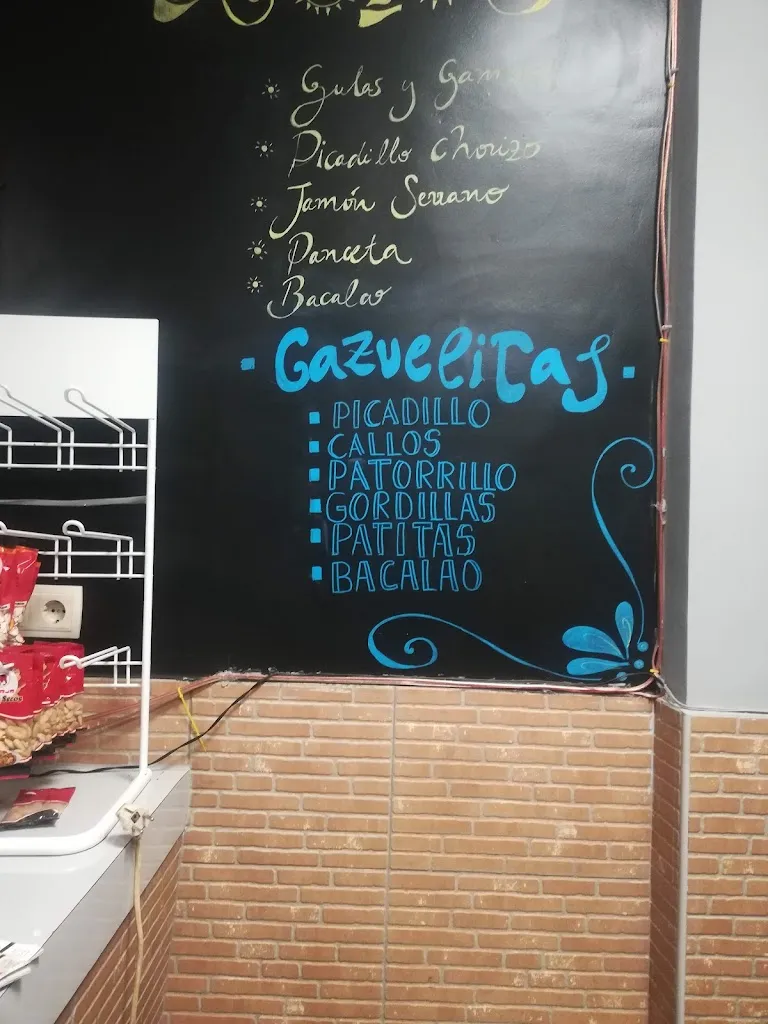 Gulas y
Picadillo chorizo
Jamón Serrano
Panceta
Bacalao
Cazuelitas
PICADILLO
CALLOS
PATORRILLO
GORDILLAS
PATITAS
BACALAO